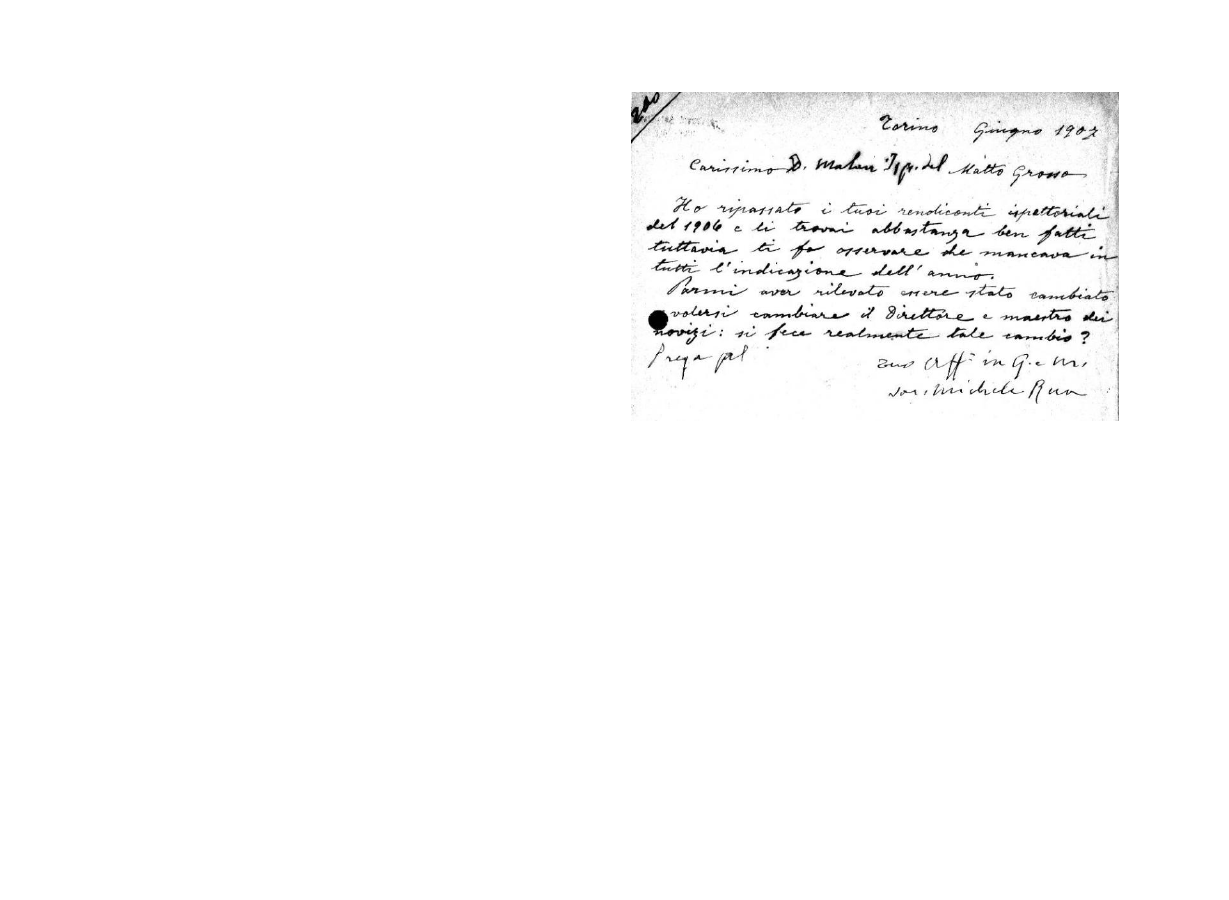 200
Torino Giugno 1907
Carissimo D. Malan Isp. del Matto Grosso
Ho ripassato i tuoi rendiconti ispettoriali
del 1906 e li trovai abbastanza ben fatti
tuttavia ti fo osservare che mancava in
tutti l'indicazione dell'anno.
Parmi aver rilevato essere stato cambiato
volersi cambiare il Direttore e maestro dei
novizi: si fece realmente tale cambio?
Prega pel
tuo aff. in G. e M.
Michele Rua